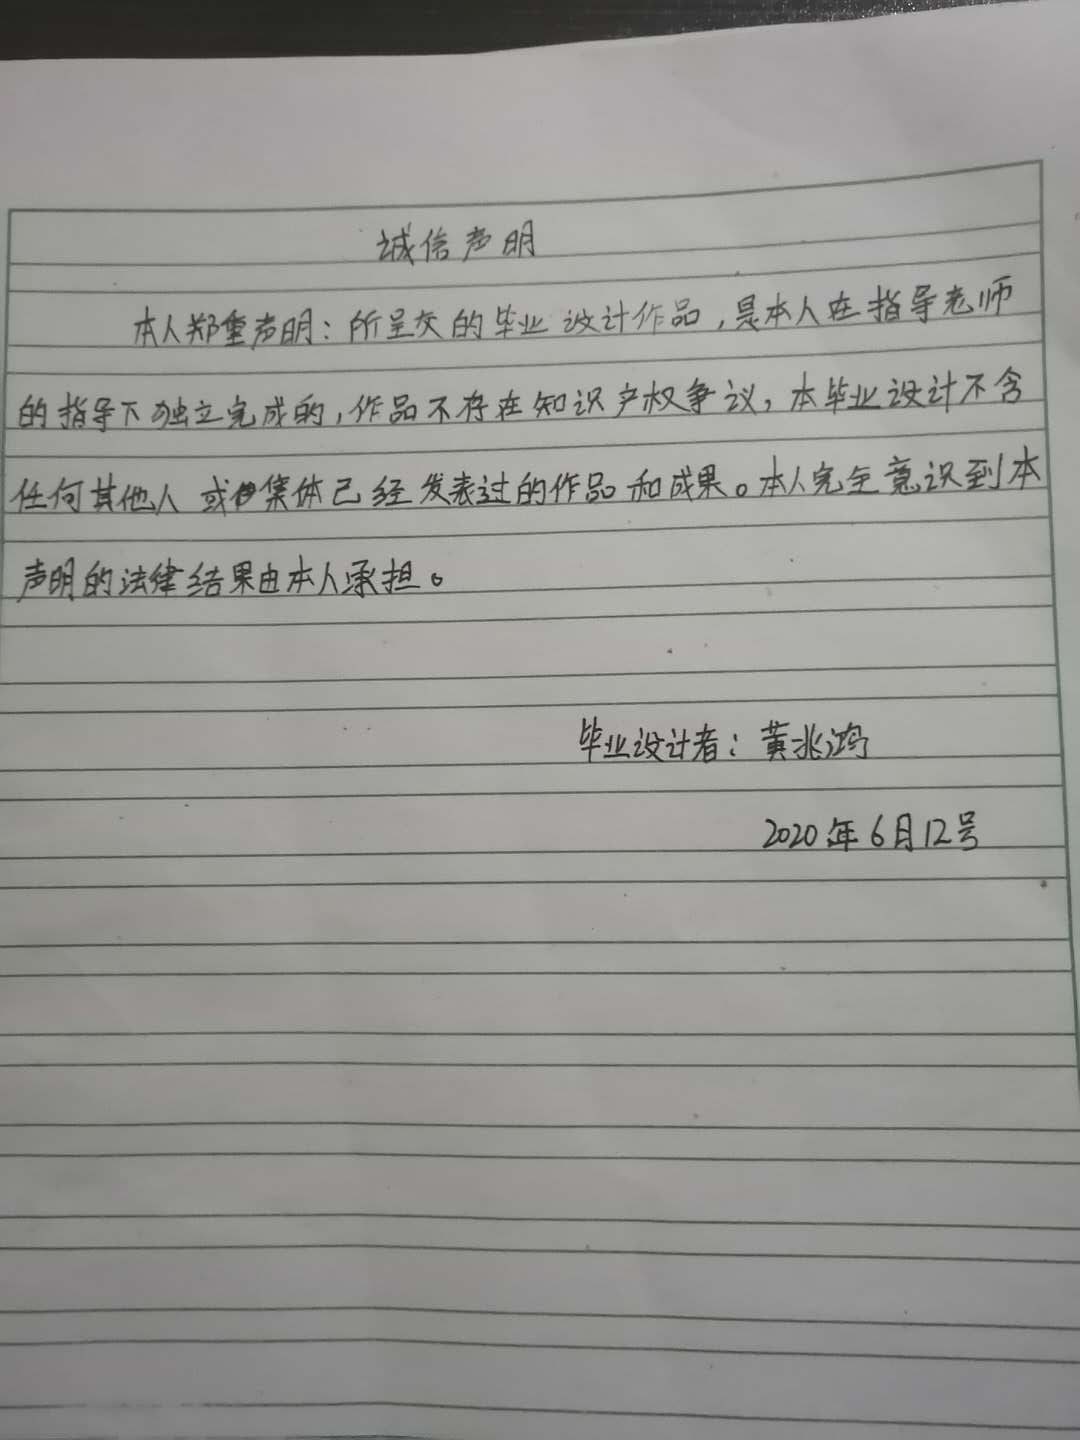 诚信声明
本人郑重声明：所呈交的毕业设计作品，是本人在指导老师
的指导下独立完成的，作品不存在知识产权争议，本毕业设计不含
任何其他人或集体已经发表过的作品和成果。本人完全意识到本
声明的法律结果由本人承担。
毕业设计者：黄兆鸿
2020年6月12号